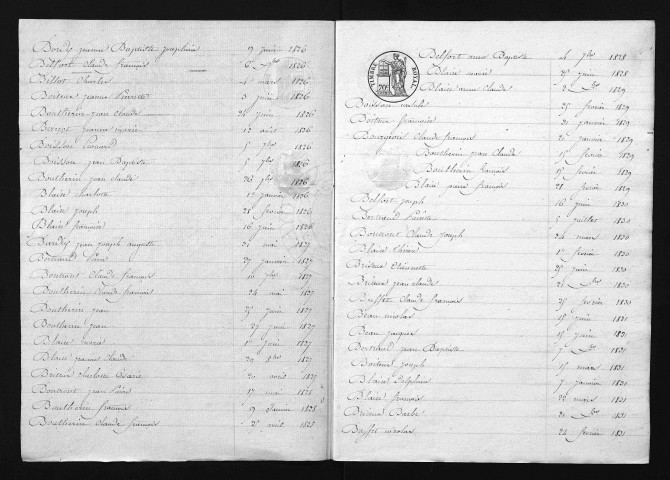 Bordy jeanne Baptiste josephine 17 juin 1826
Belfort Claude françois 6 1826
Billot Charles 4 mars 1826
Boiteux jeanne Pierrette 3 juin 1826
Boutherin jean claude 24 juin 1826
jeanne marie 12 août 1826
Boisson Leonard 5 7bre 1826
Buisson jean Baptiste 5 7bre 1826
Boutherin jean claude 26 9bre 1826
Blaise charlotte janvier 1826
Blaise joseph 28 février 1826
Blaise françoise 16 juin 1826
Bardey jean joseph auguste 21 mai 1827
Bertrand Pierre 27 janvier 1827
Boutrout Claude françois 16 1827
Boutherin Claude françois 24 mai 1827
Boutherin jean juin 1827
Boutherin jean 27 juin 1827
Blaise marie juin 1827
Blaise jeanne Claude 29 1827
charlotte 20 avril 1827
Boutrout jean Pierre 17 mai 1828
Boutherin françois 19 janvier 1828
Boutherin Claude françois 25 avril 1828
TIMBRE ROYAL
70
Belfort anne Baptiste 4 7bre 1828
Blaise marie juin 1828
Blaise anne claude 2 1829
Boisson 25 février 1829
Boiteux françoise 21 janvier 1829
Bourgeois Claude françois 20 janvier 1829
Boutherin jean Claude février 1829
Boutherin françois février 1829
Blaise jeanne françois 28 février 1829
Belfort joseph 16 juin 1830
Bertrand Pierrette 5 juillet 1830
Boutrout Claude joseph 24 mars 1830
Blaise février 1830
Etiennette juin 1830
jean claude 21 1830
Buffet Claude françois 25 février 1830
Beau nicolas 15 juin 1831
Beau jacques juin 1831
Bertrand jean Baptiste 7 1831
Boiteux joseph 17 mars 1831
Blaise Delphine 7 janvier 1831
Blaise françois 22 mars 1831
Barbe 21 1831
Buffet nicolas 24 février 1831